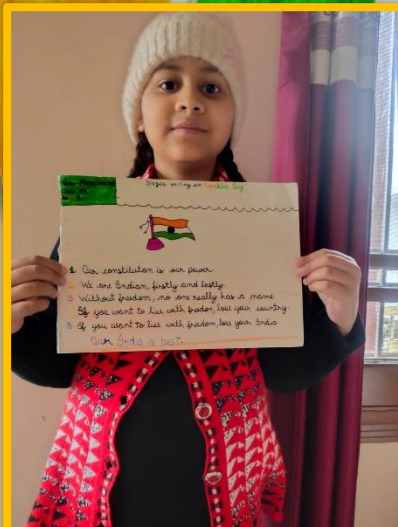 Slogan writing on Republic Day
1 Our constitution is our power.
2 We are Indian, firstly and lastly.
3 Without freedom, no one really has a name.
If you want to live with freedom, love your country.
5 If you want to live with freedom, love your India
Our India is best.